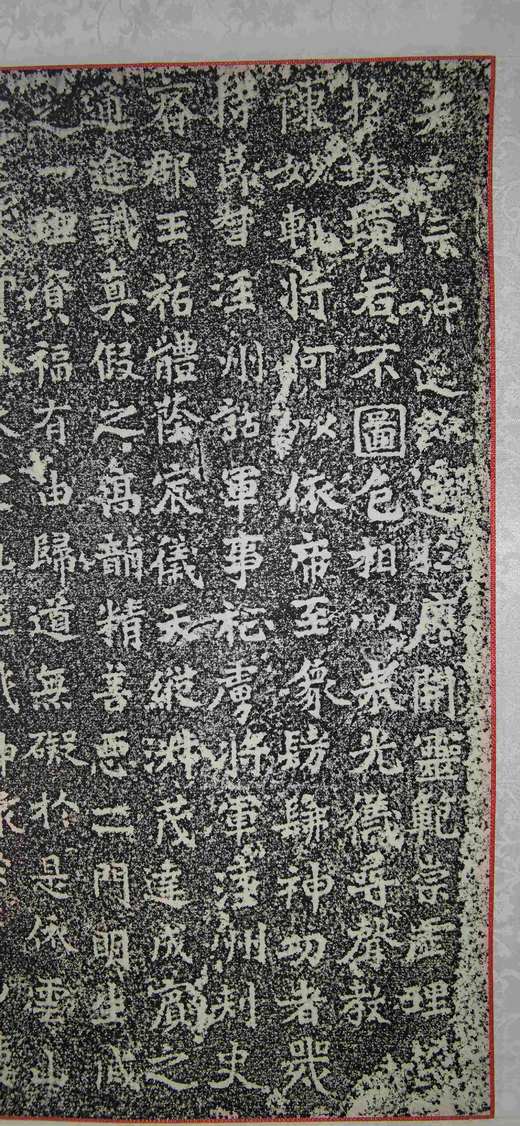 夫玄宗沖邈跡遠於塵關靈範崇虛理絕
於埃境若不圖色相以表光儀尋聲教以
陳妙軌將何以依希至象髣髴神功者哉
持節督涇州諸軍事征虜將軍涇州刺史
齊郡王祐體蔭宸儀天縱淵茂達成實之
通途識真假之高韻精善惡二門明生滅
之一理資福有由歸道無礙於是依雲山